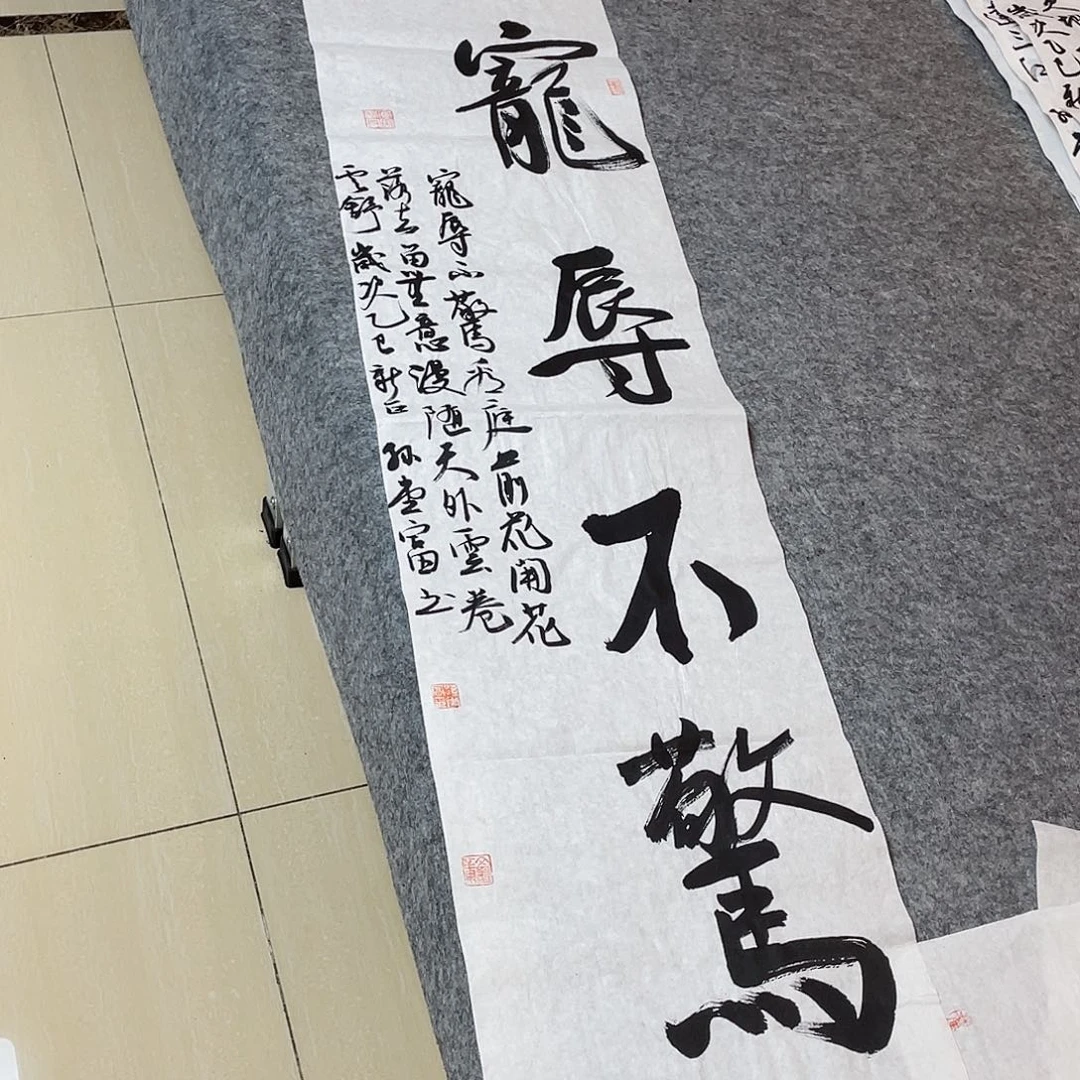 寵辱不驚
寵辱不驚看庭前花開花
落去留無意漫随天外雲卷
雲舒 歲次乙巳 富书